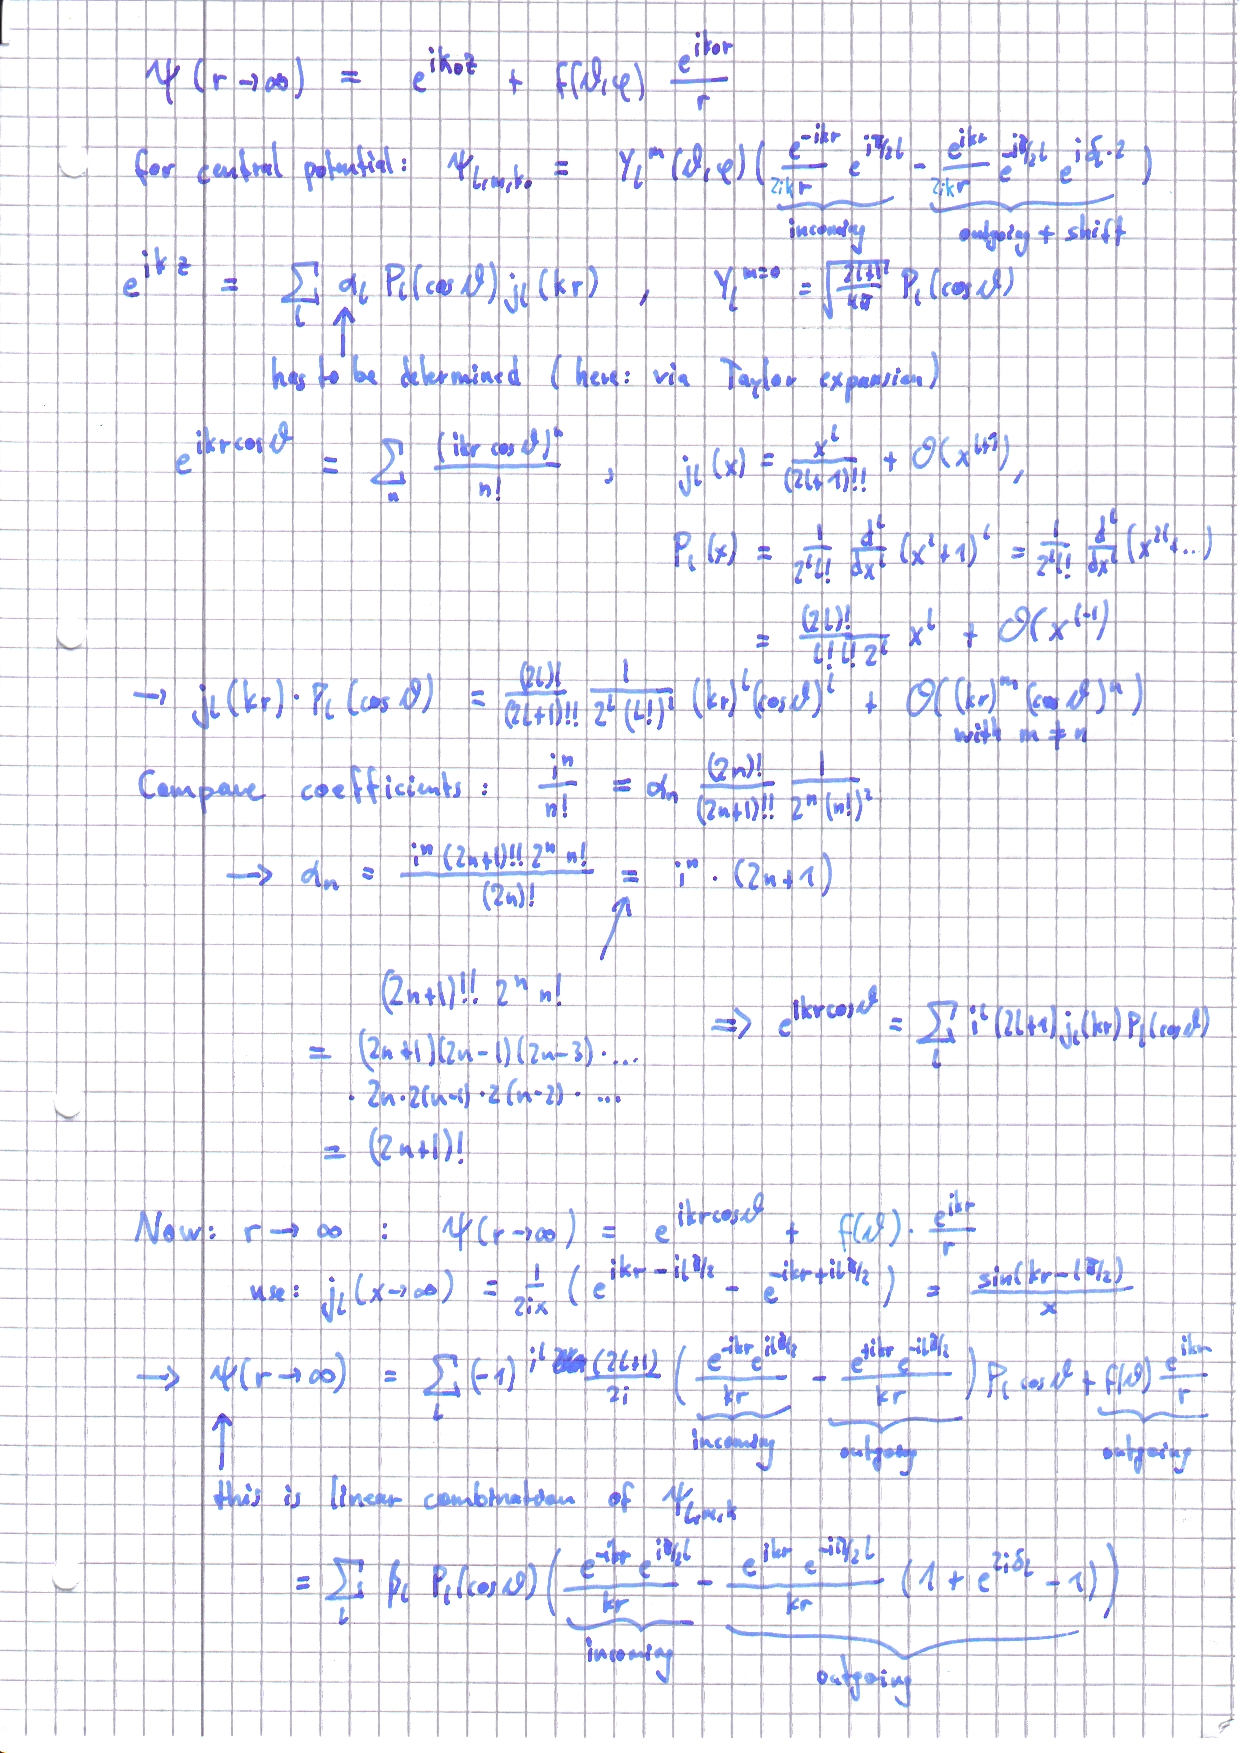 ψ(r→∞) = e^{ik₀z} + f(ϑ,φ) e^{ik₀r}/r
for central potential: ψ_{l,m,k₀} = Y_l^m(ϑ,φ) ( e^{-ikr}/(2ikr) e^{iπ/2 l} - e^{ikr}/(2ikr) e^{-iπ/2 l} e^{iδ_l·2} )
incoming outgoing + shift
e^{ikz} = Σ_l α_l P_l(cosϑ) j_l(kr) , Y_l^{m=0} = √((2l+1)/4π) P_l(cosϑ)
has to be determined (here: via Taylor expansion)
e^{ikr cosϑ} = Σ_n (ikr cosϑ)^n/n! , j_l(x) = x^l/(2l+1)!! + O(x^{l+1}),
P_l(x) = 1/(2^l l!) d^l/dx^l (x²+1)^l = 1/(2^l l!) d^l/dx^l (x^{2l}+...)
= (2l)!/(l! l! 2^l) x^l + O(x^{l-1})
→ j_l(kr)·P_l(cosϑ) = (2l)!/(2l+1)!! 1/(2^l (l!)²) (kr)^l (cosϑ)^l + O((kr)^m (cosϑ)^n)
with m ≠ n
Compare coefficients: i^n/n! = α_n (2n)!/(2n+1)!! 1/(2^n (n!)²)
→ α_n = i^n (2n+1)!! 2^n n!/(2n)! = i^n · (2n+1)
(2n+1)!! 2^n n!
⇒ e^{ikr cosϑ} = Σ_l i^l (2l+1) j_l(kr) P_l(cosϑ)
= (2n+1)(2n-1)(2n-3)·...
· 2n·2(n-1)·2(n-2)·...
= (2n+1)!
Now: r→∞ : ψ(r→∞) = e^{ikr cosϑ} + f(ϑ)· e^{ikr}/r
use: j_l(x→∞) = 1/(2ix) ( e^{ikr-ilπ/2} - e^{-ikr+ilπ/2} ) = sin(kr-lπ/2)/x
→ ψ(r→∞) = Σ_l (-1) i^l (2l+1)/(2i) ( e^{-ikr} e^{ilπ/2}/(kr) - e^{+ikr} e^{-ilπ/2}/(kr) ) P_l cosϑ + f(ϑ) e^{ikr}/r
incoming outgoing outgoing
this is linear combination of ψ_{l,m,k}
= Σ_l β_l P_l(cosϑ) ( e^{-ikr} e^{iπ/2 l}/(kr) - e^{ikr} e^{-iπ/2 l}/(kr) (1 + e^{2iδ_l} - 1) )
incoming
outgoing